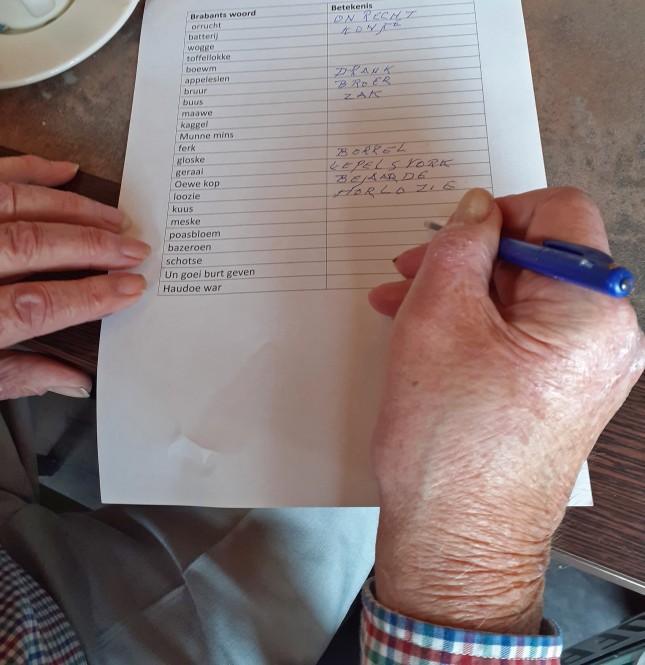 Brabants woord Betekenis
orrucht ONRECHT
batterij KONT
wogge
toffellokke
boewm
appelesien DRANK
bruur BROER
buus ZAK
maawe
kaggel
Munne mins
ferk
gloske BORREL
geraai LEPELSVORK
Oewe kop BEJAARDE
loozie HORLOZIE
kuus
meske
poasbloem
bazeroen
schotse
Un goei burt geven
Haudoe war